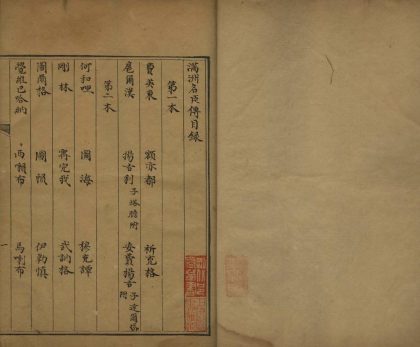 滿洲名臣傳目錄
第一本
費英東 額亦都 祈充格
扈爾漢 揚古利 子塔瞻附 安費揚古 子達爾岱附
第二本
何和哩 圖海 穆克譚
剛林 甯完我 武訥格
圖爾格 圖賴 伊勒慎
覺羅巴哈納 西喇布
一